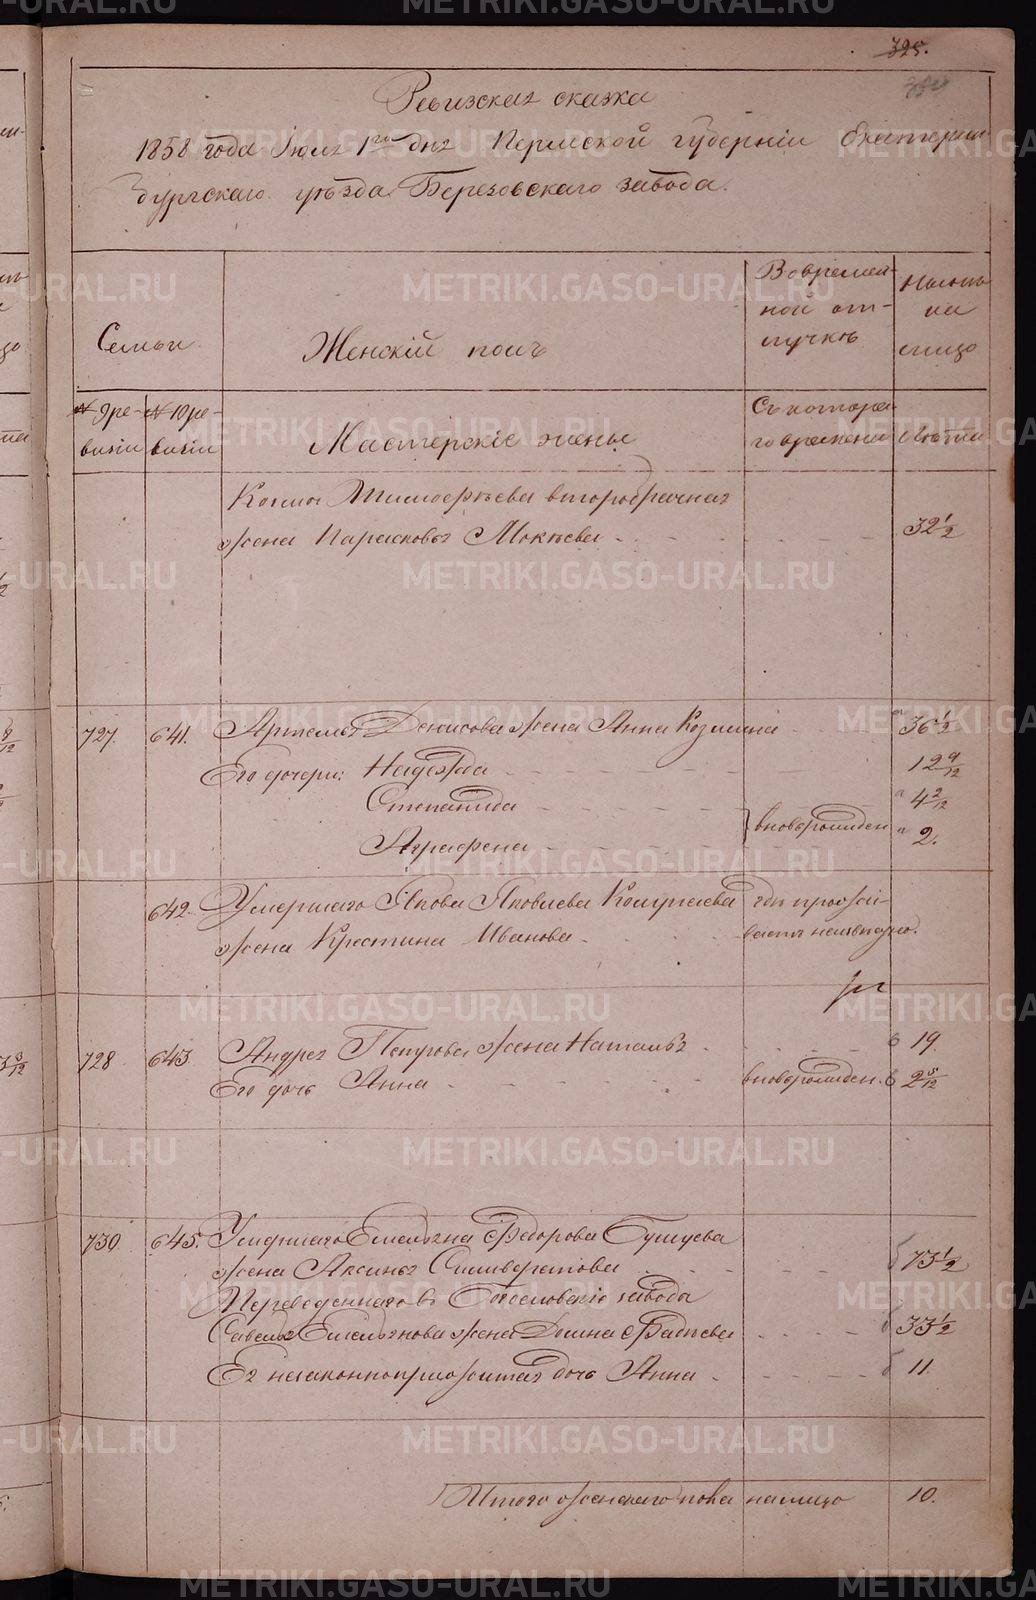 325.
Ревизская сказка
1858 года Июля 1го дня Пермской губерніи Екатерин
бургскаго уѣзда Березовскаго завода.
Семьи
Женскій полъ
Во времен-
ной от-
лучкѣ
Налицо
№ 9 ре-
визіи
№ 10 ре-
визіи
Мастерскіе жены
Съ котора-
го времени
Лѣта
Козмы Тимофѣева второбрачная
жена Парасковья Мокѣева 32 1/2
727. 641. Артемья Денисова жена Анна Козмина 36 1/2
Его дочери: Надежда 12 9/12
Степанида 4 2/12
Аграфена вновьрожден. 2.
642. Умершаго Якова Яковлева
жена Крестина Иванова
гдѣ прожи-
ваетъ неизвѣстно.
728 643. Андрея Петрова жена Наталья 19.
Его дочь Анна вновьрожден. 2 5/12
730. 645. Умершаго Емельяна Федорова
жена Аксинья Силиверстова 73 1/2
Переведеннаго въ Богословскіе завода
Савелья Емельянова жена Домна Фадѣева 33 1/2
Ея незаконноприжитая дочь Анна 11.
Итого женскаго пола налицо 10.
METRIKI.GASO-URAL.RU